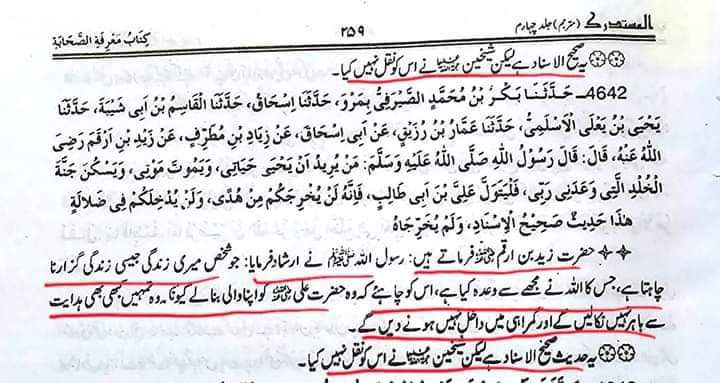 المستدرک (مترجم) جلد چہارم ۲۵۹ کِتَابُ مَعْرِفَةِ الصَّحَابَةِ
یہ صحیح الاسناد ہے لیکن شیخین نے اس کو نقل نہیں کیا۔
4642۔ حَدَّثَنَا بَكْرُ بْنُ مُحَمَّدِ الصَّيْرَفِيُّ بِمَرْوَ، حَدَّثَنَا اِسْحَاقُ، حَدَّثَنَا الْقَاسِمُ بْنُ اَبِي شَيْبَةَ، حَدَّثَنَا
يَحْيَى بْنُ يَعْلَى الْاَسْلَمِيُّ، حَدَّثَنَا عَمَّارُ بْنُ رُزَيْقٍ، عَنْ اَبِي اِسْحَاقَ، عَنْ زِيَادِ بْنِ مُطَرِّفٍ، عَنْ زَيْدِ بْنِ اَرْقَمَ رَضِيَ
اللهُ عَنْهُ، قَالَ: قَالَ رَسُوْلُ اللهِ صَلَّى اللهُ عَلَيْهِ وَسَلَّمَ: مَنْ يُرِيدُ اَنْ يَحْيَى حَيَاتِي، وَيَمُوتَ مَوْتِي، وَيَسْكُنَ جَنَّةَ
الْخُلْدِ الَّتِي وَعَدَنِي رَبِّي، فَلْيَتَوَلَّ عَلِيَّ بْنَ اَبِي طَالِبٍ، فَاِنَّهُ لَنْ يُخْرِجَكُمْ مِنْ هُدًى، وَلَنْ يُدْخِلَكُمْ فِي ضَلالَةٍ
هٰذَا حَدِيْثٌ صَحِيْحُ الْاِسْنَادِ، وَلَمْ يُخَرِّجَاهُ
حضرت زید بن ارقم رضی اللہ عنہ فرماتے ہیں: رسول اللہ ﷺ نے ارشاد فرمایا: جو شخص میری زندگی جیسی زندگی گزارنا
چاہتا ہے، جس کا اللہ نے مجھے سے وعدہ کیا ہے، اس کو چاہئے کہ وہ حضرت علی رضی اللہ عنہ کو اپنا والی بنا لے کیونکہ وہ تمہیں کبھی بھی ہدایت
سے باہر نہیں نکالیں گے اور گمراہی میں داخل نہیں ہونے دیں گے۔
یہ حدیث صحیح الاسناد ہے لیکن شیخین نے اس کو نقل نہیں کیا۔